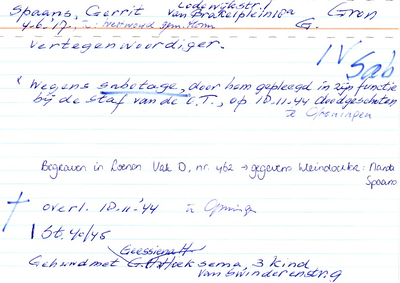 Lodewijkstr.
Spaans, Gerrit van Brakelplein 10a Gron
4-6-'17, G.
vertegenwoordiger.
IV Sab
Wegens sabotage, door hem gepleegd in zijn functie
bij de staf van de O.T., op 10-11-'44 doodgeschoten
te Groningen
Begraven in Loenen Vak D, nr. 462 → gegevens kleindochter: Manda
Spaans
overl. 10-11-'44 te Groningen
1 St. 40/45
Geessiena H
Gehuwd met G. Hoeksema, 3 kind
van Swinderenstr. 9